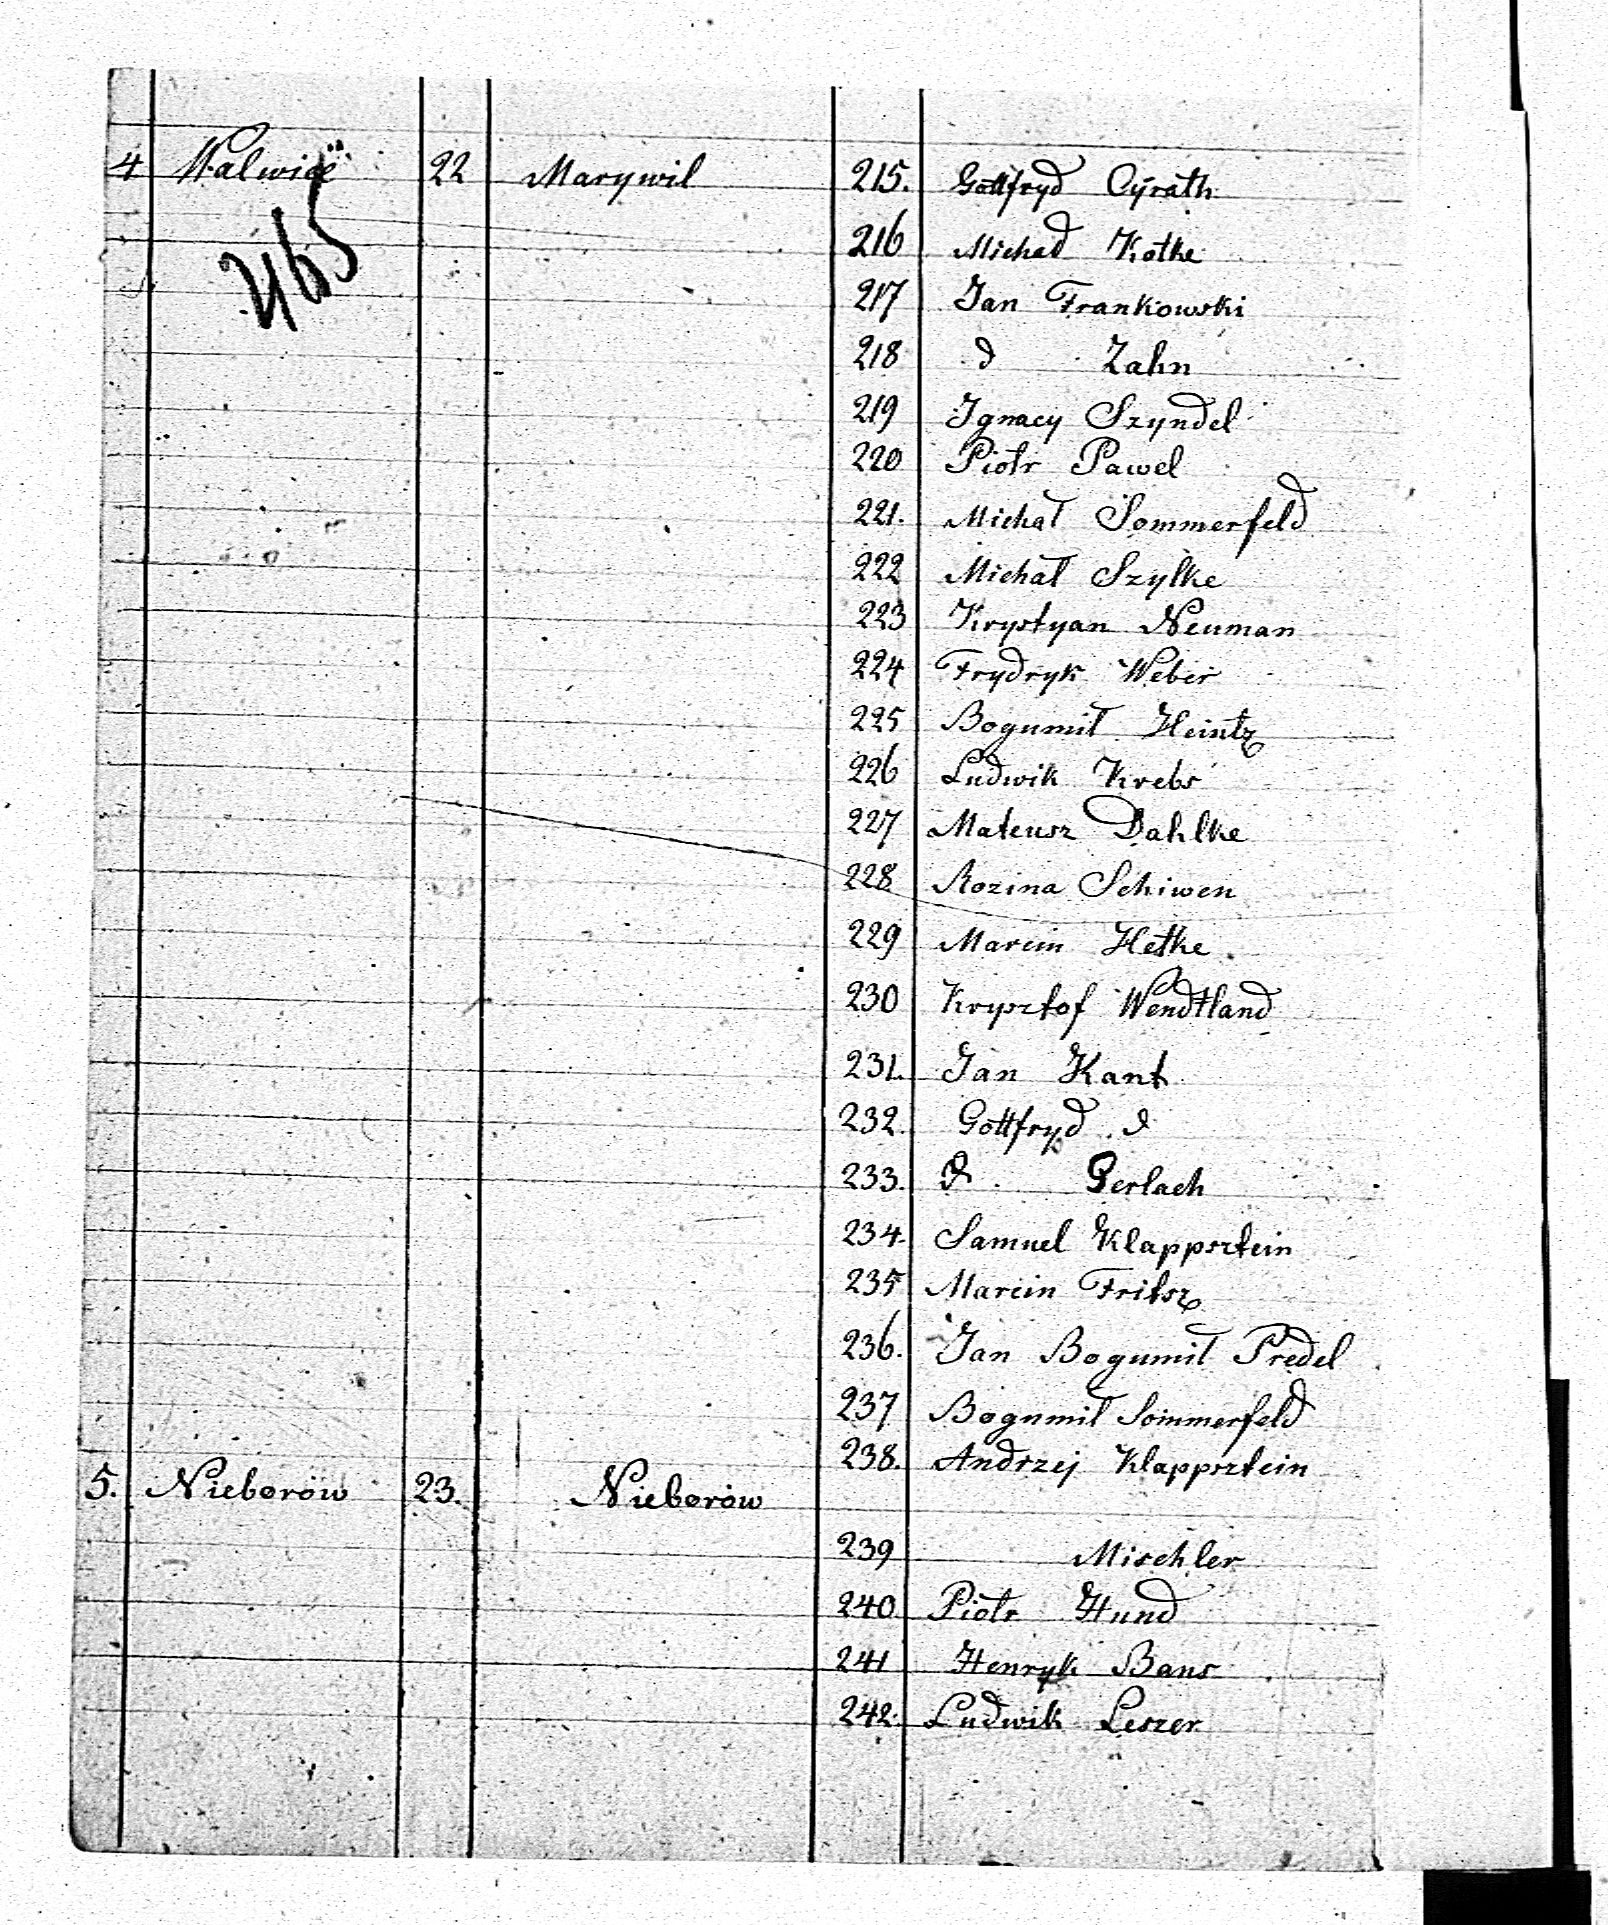 4 Walwice 22 Marywil 215. Gottfryd Cyrath
465
216 Michał Kotke
217 Jan Frankowski
218 d Zahn
219 Ignacy Szyndel
220 Piotr Paweł
221. Michał Sommerfeld
222 Michał Szylke
223 Krystyan Neuman
224 Frydryk Weber
225 Bogumił Heintz
226 Ludwik Krebs
227 Mateusz Dahlke
228 Rozina Schiwen
229 Marcin Hetke
230 Krysztof Wendtland
231. Jan Kant
232. Gottfryd d
233. d Gerlach
234. Samuel Klappsztein
235 Marcin Fritsz
236. Jan Bogumił Predel
237 Bogumił Sommerfeld
238. Andrzej Klappsztein
5. Nieborów 23. Nieborów
239 Mischler
240 Piotr Hund
241 Henryk Bans
242. Ludwik Leszer